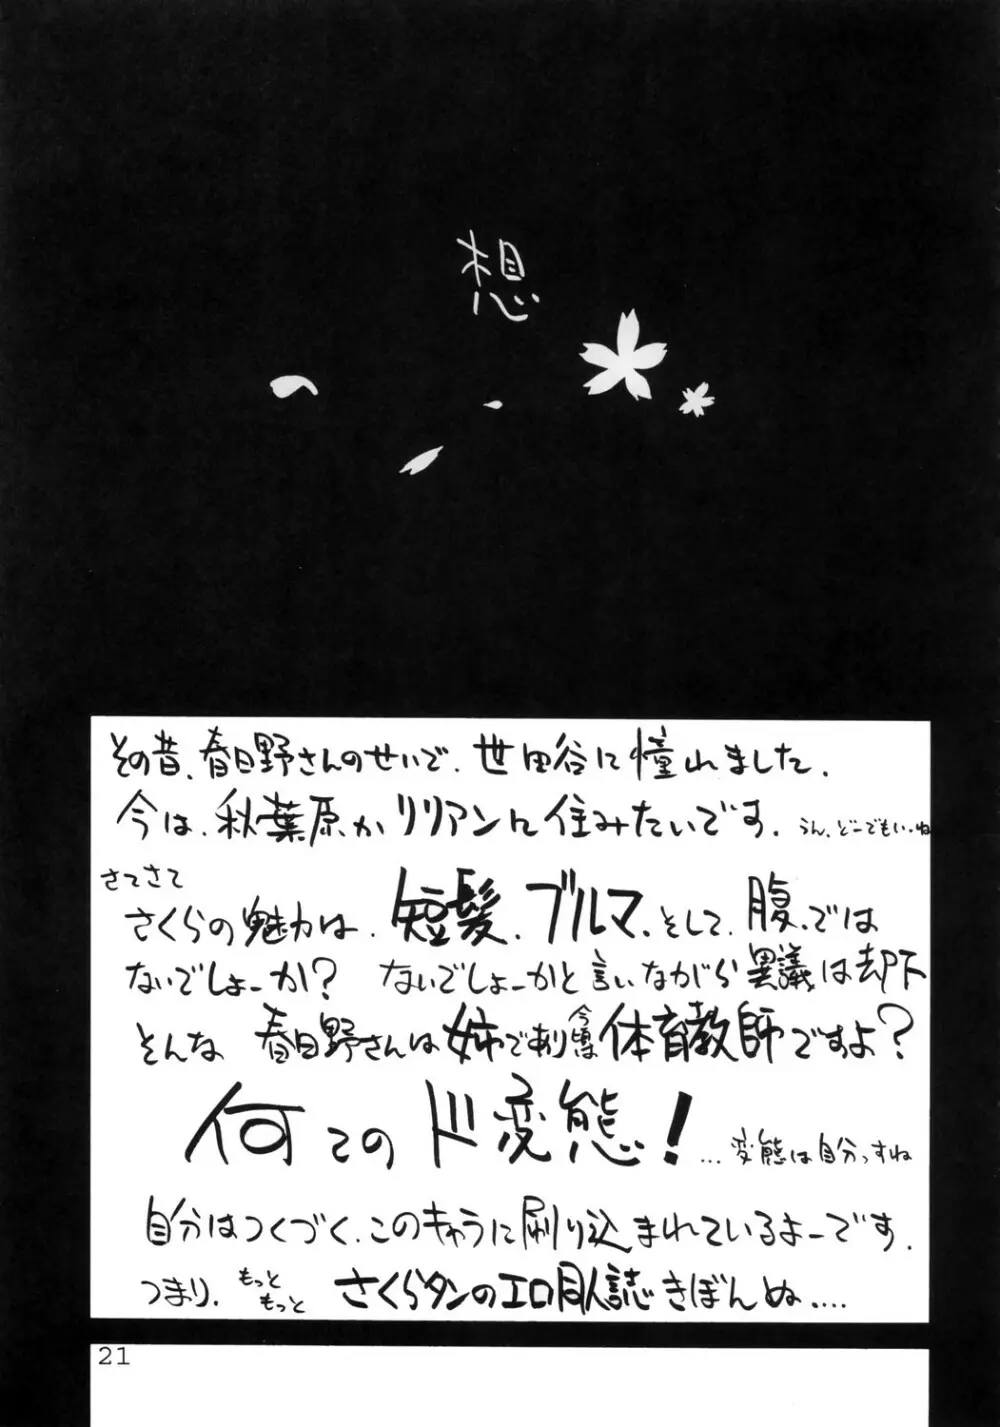 想
その昔、春日野さんのせいで、世田谷に憧れました。
今は、秋葉原かリリアンに住みたいです。うん、どーでもいーね
さてさて
さくらの魅力は、短髪、ブルマ、そして、腹、では
ないでしょーか？ ないでしょーかと言いながら異議は却下
そんな 春日野さんは姉であり今頃は体育教師ですよ？
何てのド変態！...変態は自分っすね
自分はつくづく、このキャラに刷り込まれているよーです。
つまり、もっともっと さくらタンのエロ同人誌きぼんぬ....
21